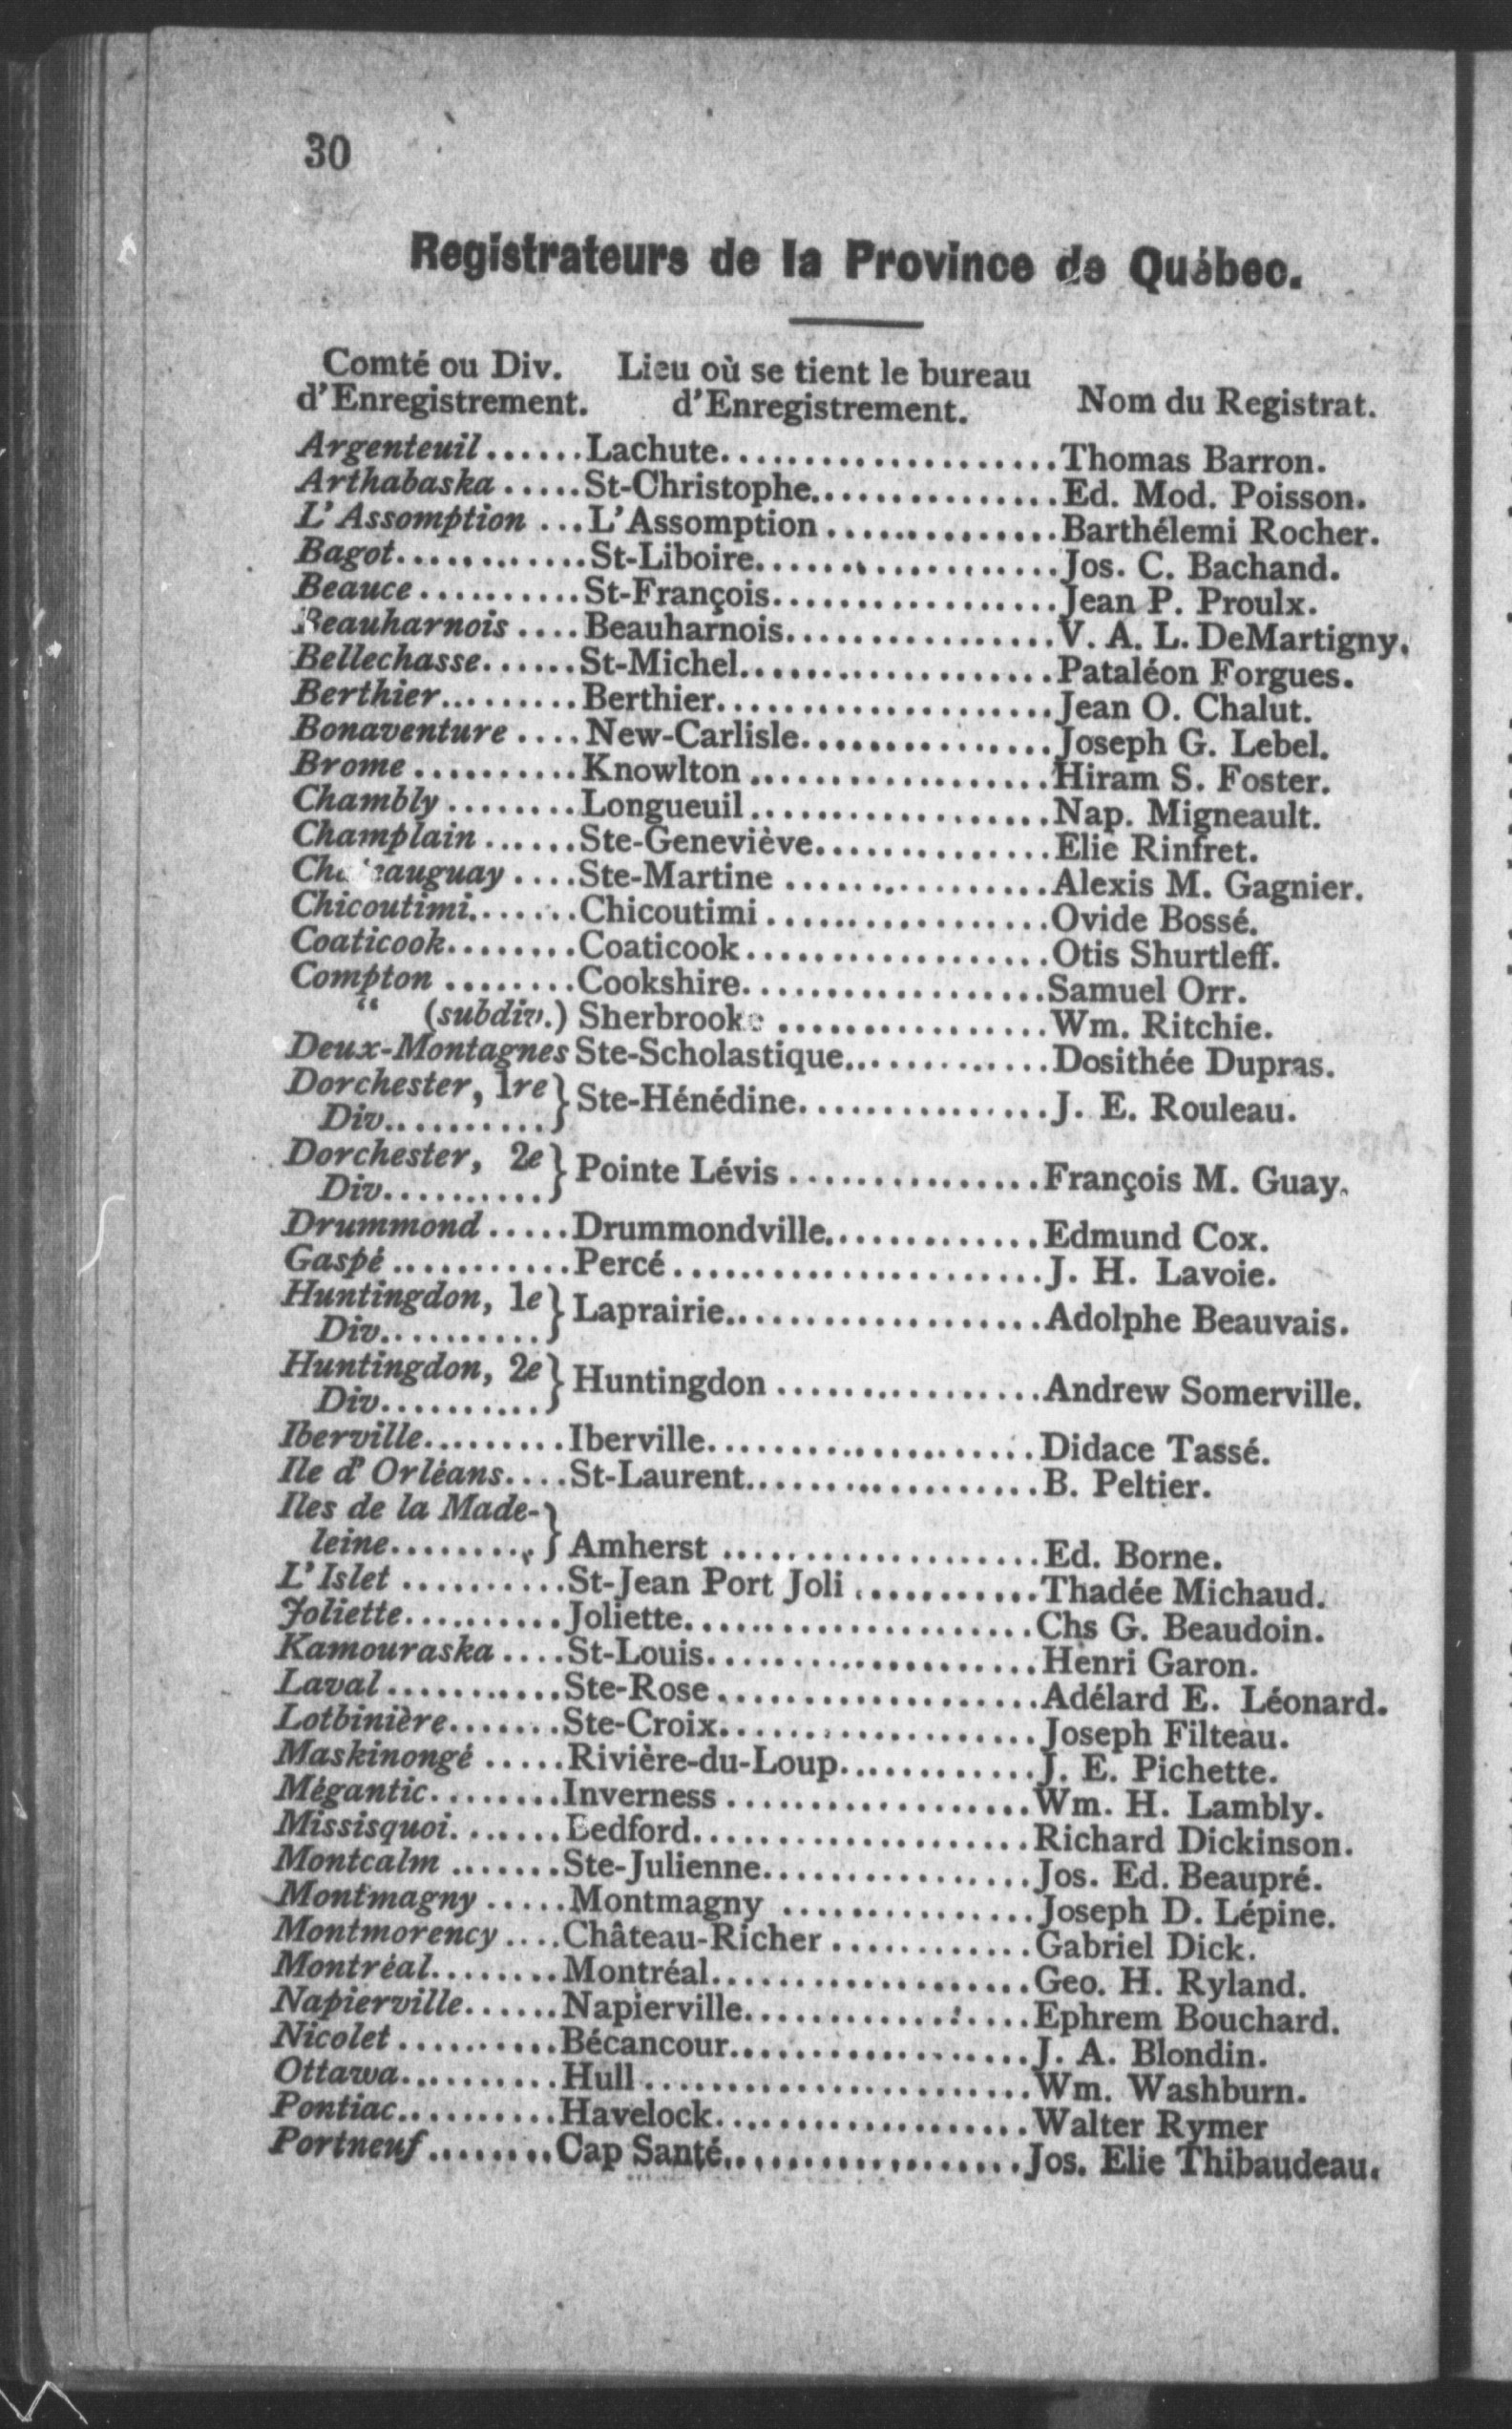 30
Registrateurs de la Province de Québec.
Comté ou Div. Lieu où se tient le bureau
d'Enregistrement. d'Enregistrement. Nom du Registrat.
Argenteuil......Lachute.....................Thomas Barron.
Arthabaska.....St-Christophe................Ed. Mod. Poisson.
L'Assomption...L'Assomption..............Barthélemi Rocher.
Bagot............St-Liboire...................Jos. C. Bachand.
Beauce..........St-François..................Jean P. Proulx.
Beauharnois....Beauharnois.................V. A. L. DeMartigny.
Bellechasse......St-Michel...................Pataléon Forgues.
Berthier.........Berthier.....................Jean O. Chalut.
Bonaventure....New-Carlisle................Joseph G. Lebel.
Brome..........Knowlton..................Hiram S. Foster.
Chambly........Longueuil..................Nap. Migneault.
Champlain......Ste-Geneviève...............Elie Rinfret.
Chateauguay....Ste-Martine................Alexis M. Gagnier.
Chicoutimi.......Chicoutimi.................Ovide Bossé.
Coaticook........Coaticook...................Otis Shurtleff.
Compton........Cookshire...................Samuel Orr.
“ (subdiv.) Sherbrooke.................Wm. Ritchie.
Deux-Montagnes Ste-Scholastique.............Dosithée Dupras.
Dorchester, 1re
Div.......... } Ste-Hénédine................J. E. Rouleau.
Dorchester, 2e
Div.......... } Pointe Lévis................François M. Guay.
Drummond.....Drummondville.............Edmund Cox.
Gaspé...........Percé.......................J. H. Lavoie.
Huntingdon, 1e
Div.......... } Laprairie....................Adolphe Beauvais.
Huntingdon, 2e
Div.......... } Huntingdon.................Andrew Somerville.
Iberville.........Iberville.....................Didace Tassé.
Ile d'Orléans....St-Laurent...................B. Peltier.
Iles de la Made-
leine.......... } Amherst....................Ed. Borne.
L'Islet..........St-Jean Port Joli............Thadée Michaud.
Joliette..........Joliette......................Chs G. Beaudoin.
Kamouraska....St-Louis.....................Henri Garon.
Laval...........Ste-Rose....................Adélard E. Léonard.
Lotbinière.......Ste-Croix....................Joseph Filteau.
Maskinongé.....Rivière-du-Loup.............J. E. Pichette.
Mégantic........Inverness...................Wm. H. Lambly.
Missisquoi.......Bedford.....................Richard Dickinson.
Montcalm.......Ste-Julienne.................Jos. Ed. Beaupré.
Montmagny.....Montmagny................Joseph D. Lépine.
Montmorency....Château-Richer.............Gabriel Dick.
Montréal........Montréal....................Geo. H. Ryland.
Napierville......Napierville..................Ephrem Bouchard.
Nicolet..........Bécancour...................J. A. Blondin.
Ottawa..........Hull........................Wm. Washburn.
Pontiac..........Havelock....................Walter Rymer
Portneuf........Cap Santé...................Jos. Elie Thibaudeau.